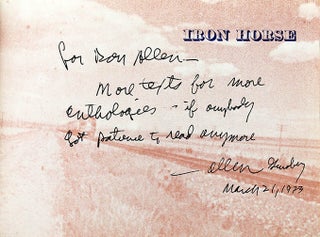 IRON HORSE
for Don Allen —
More texts for more
anthologies — if anybody
got patience to read anymore
— Allen Ginsberg
March 21, 1973